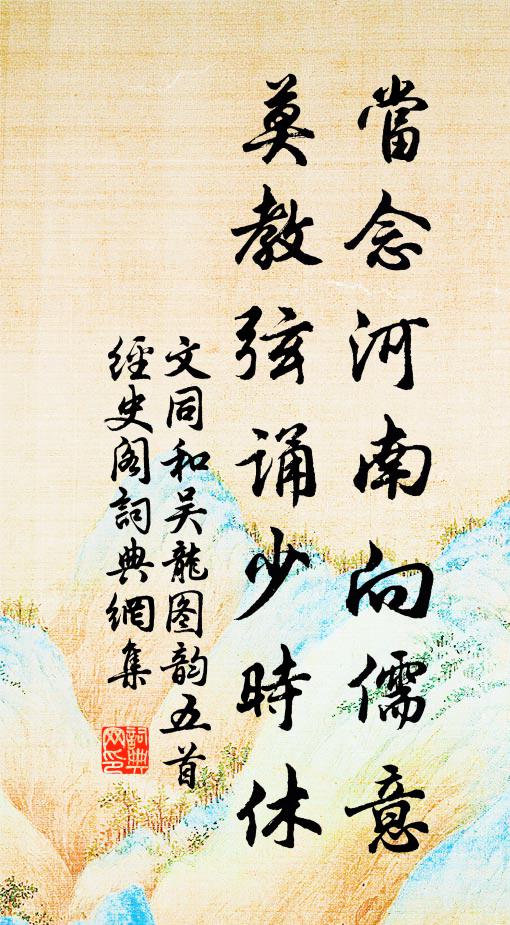 當念河南向儒意
莫教弦誦少時休
文同和吴龍图韵五首
經史阁詞典網集
詞典
网印